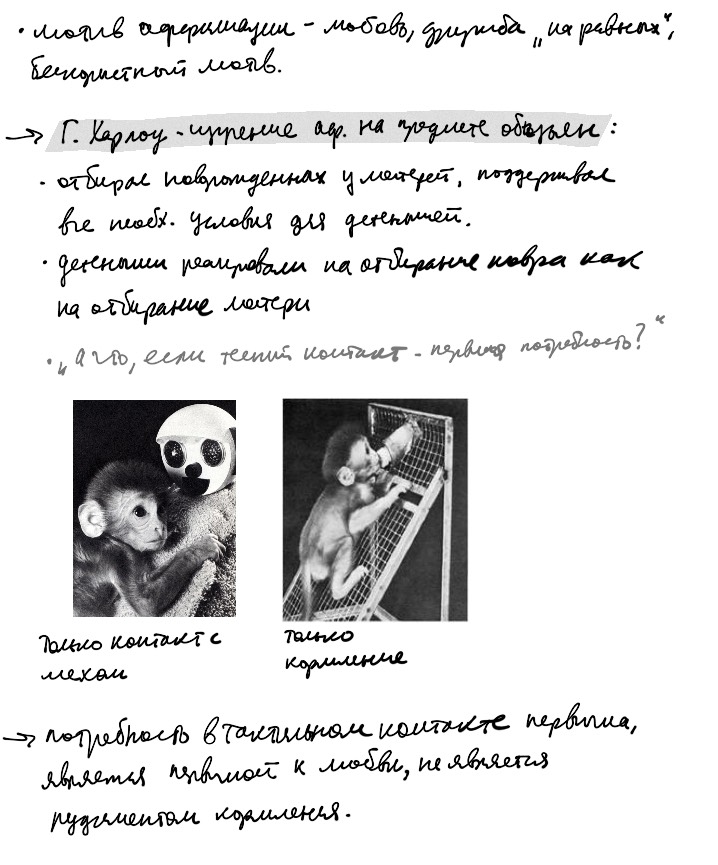 · мотив аффилиации - любовь, дружба „на равных“,
бескорыстный мотив.
→ Г. Харлоу - изучение аф. на предмете обезьян:
· отбирал новорожденных у матерей, поддерживал
все необх. условия для детенышей.
· детеныши реагировали на отбирание ковра как
на отбирание матери
· „а что, если тесный контакт - первичн потребность?“
только контакт с
мехом
только
кормление
→ потребность в тактильном контакте первична,
является первичной к любви, не является
рудиментом кормления.